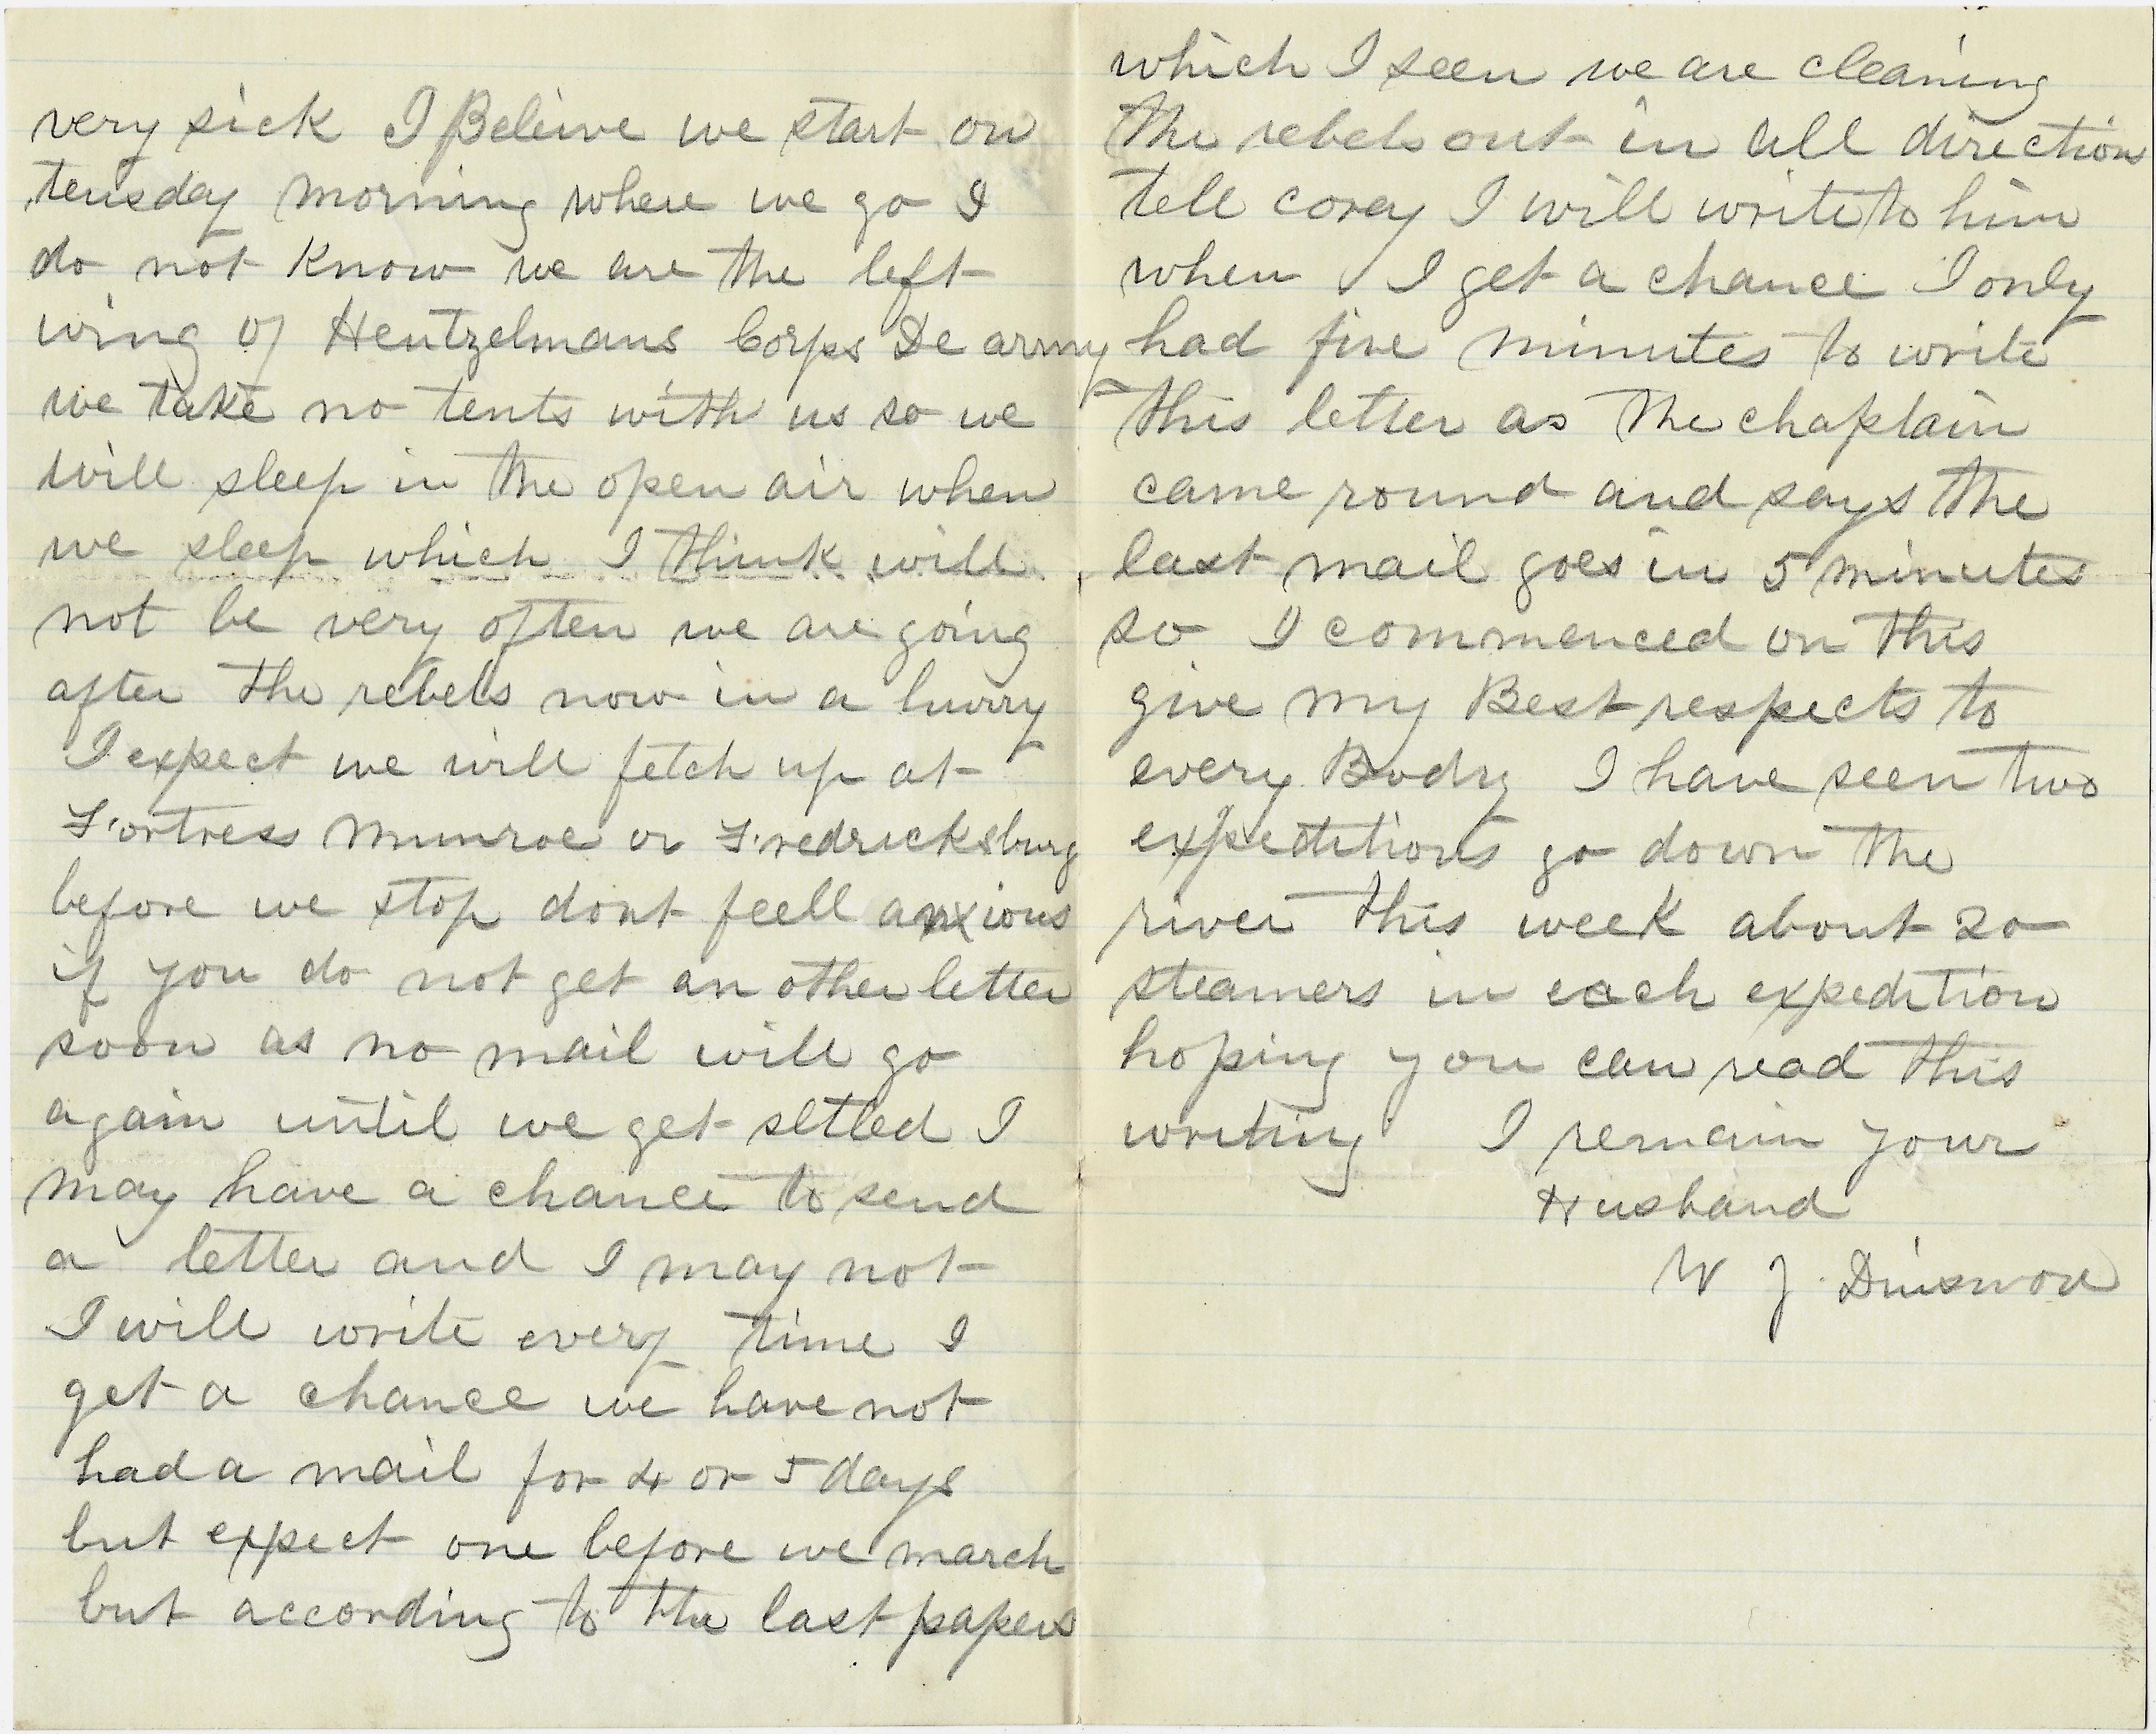 very sick I Beleive we start on
teusday morning where we go I
do not Know we are the left
wing of Hentzelmans Corps De army
we take no tents with us so we
will sleep in the open air when
we sleep which I think will
not be very often we are going
after the rebels now in a hurry
I expect we will fetch up at
Fortress Munroe or Fredricksburg
before we stop dont feell anxious
if you do not get an other letter
soon as no mail will go
again until we get setled I
may have a chance to send
a letter and I may not
I will write every time I
get a chance we have not
had a mail for 4 or 5 days
but expect one before we march
but according to the last papers
which I seen we are cleaning
the rebels out in all direction
tell corey I will write to him
when I get a chance I only
had five minutes to write
this letter as the chaplain
came round and says the
last mail goes in 5 minutes
so I commenced on this
give my Best respects to
every Body I have seen two
expeditions go down the
river this week about 20
steamers in each expedition
hoping you can read this
writing I remain your
Husband
W J Dinsmore